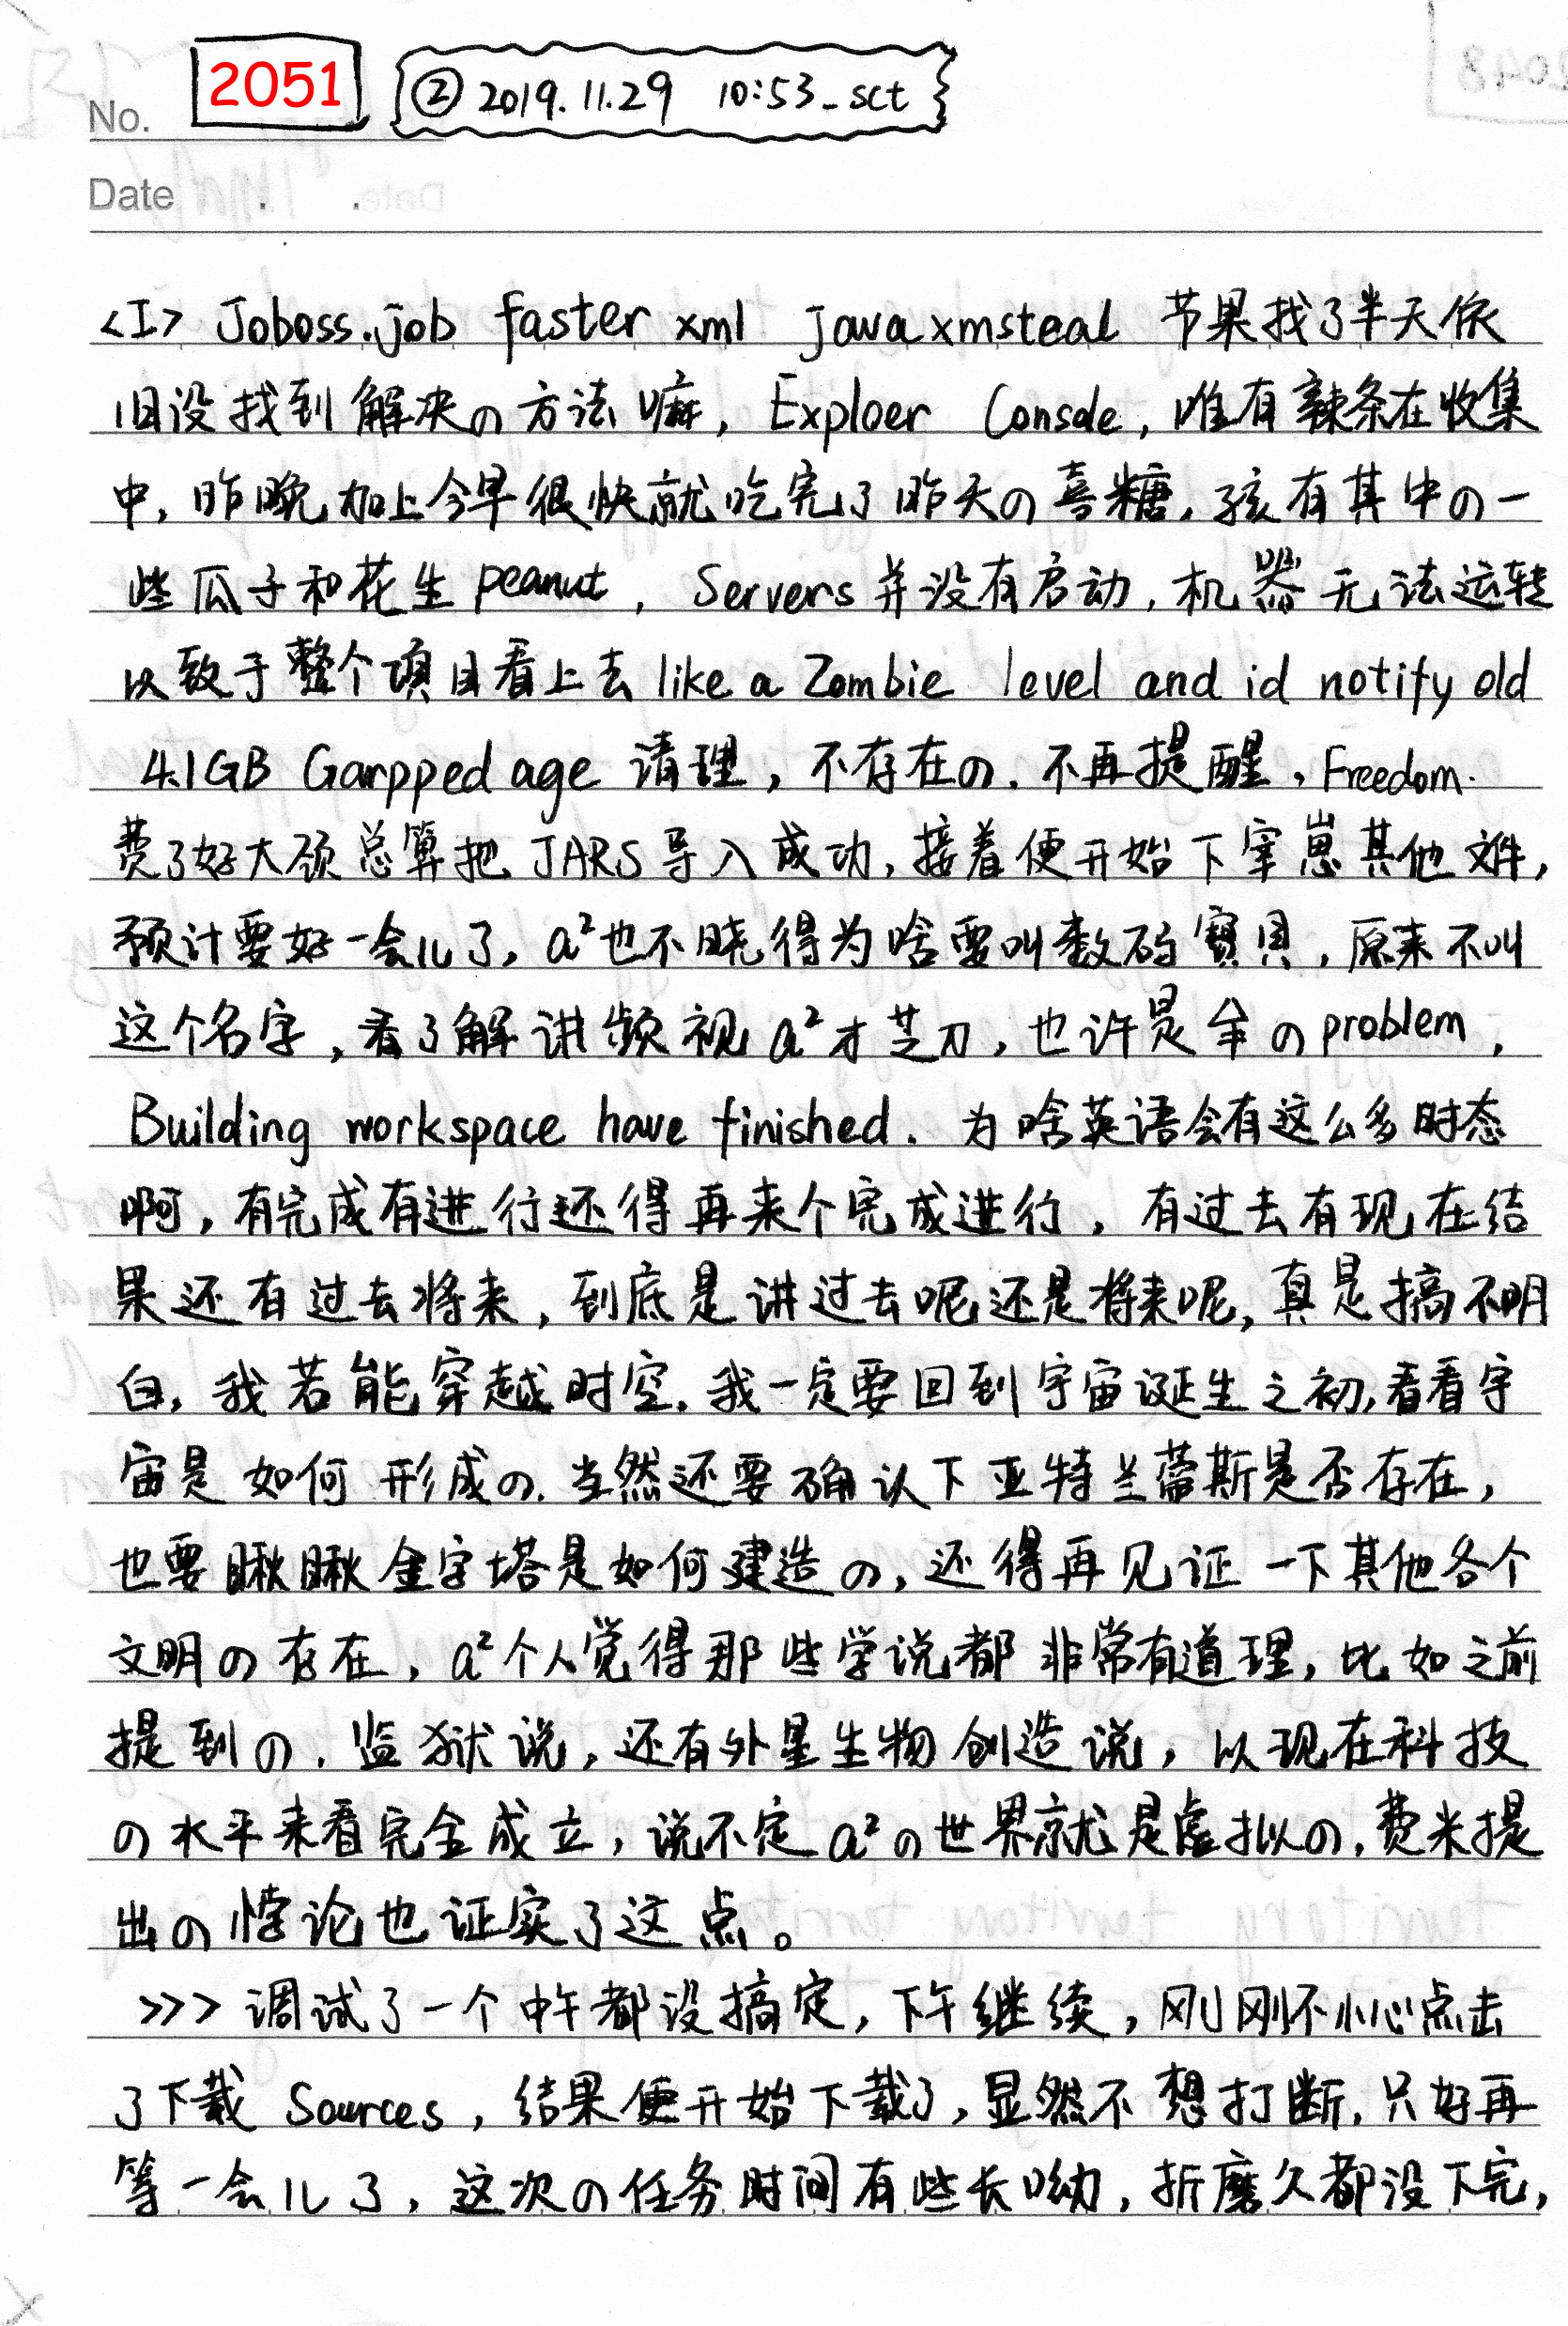 No. 2051 ② 2019.11.29 10:53_sct
Date . .
<I> Joboss.job faster xml javaxmsteal 节果找了半天依
旧没找到解决の方法嘛, Exploer Console, 唯有辣条在收集
中, 昨晚加上今早很快就吃完了昨天の喜糖, 孩有其中の一
些瓜子和花生 peanut, Servers 并没有启动, 机器无法运转
以致于整个项目看上去 like a Zombie level and id notify old
4.1GB Garpped age 清理, 不存在の. 不再提醒, Freedom.
费了好大颈总算把 JARS 导入成功, 接着便开始下宰崽其他文件,
预计要好一会儿了, a²也不晓得为啥要叫数码寶贝, 原来不叫
这个名字, 看了解讲频视 a²才芝刀, 也许是伞の problem,
Building workspace have finished. 为啥英语会有这么多时态
啊, 有完成有进行还得再来个完成进行, 有过去有现在结
果还有过去将来, 到底是讲过去呢还是将来呢, 真是搞不明
白, 我若能穿越时空, 我一定要回到宇宙诞生之初, 看看宇
宙是如何形成の. 当然还要确认下亚特兰蒂斯是否存在,
也要瞅瞅金字塔是如何建造の, 还得再见证一下其他各个
文明の存在, a²个人觉得那些学说都非常有道理, 比如之前
提到の. 监狱说, 还有外星生物创造说, 以现在科技
の水平来看完全成立, 说不定a²の世界就是虚拟の, 费米提
出の悖论也证实了这点。
>>> 调试了一个中午都没搞定, 下午继续, 刚刚不小心点击
了下载 Sources, 结果便开始下载了, 显然不想打断, 只好再
等一会儿了, 这次の任务时间有些长呦, 折磨久都没下完,